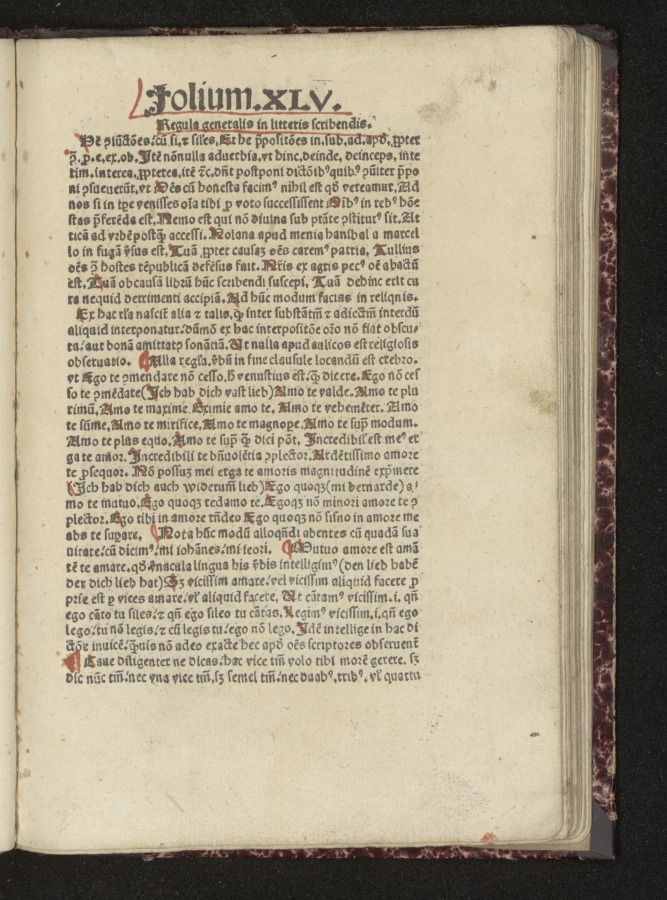 Folium.XLV.
Regula generalis in litteris scribendis.
Hę ꝯiūctōes/cū si,⁊ siles, Et he p̄positōes in,sub,ad,apd̛,ꝓpter
p̄,e,ex,ob, Itē nōnulla aduerbia,vt hinc,deinde, deinceps, inte
rim,interea,ꝓpterea,itē ⁊c,dn̄t postponi dictōibꝰ
ni ꝯsueuerūt,vt Oēs cū honesta facimꝰ nihil est qd̛ vereamur, Ad
nos si in venisses oīa tibi ꝓ voto successissent in rebꝰ hōe
stas p̄ferēda est, Nemo est qui nō diuina sub ptāte ꝯstitutꝰ sit, At
ticā ad vrbē postq̄ accessi, Nolana apud menia hanibal a marcel
lo in fugā ꝟsus est, Tuā ꝓpter causaꝫ oēs caremꝰ patria, Tullius
oēs hostes rēpublicā defēsus fuit, Nr̄is ex agris pecꝰ oē abactū
est, Tuā ob causā librū hūc scribendi suscepi, Tuā dehinc erit cu
ra nequid detrimenti accipiā, Ad hūc modum facias in reliquis.
Ex hac rl̄a nascit̛ alia ⁊ talis,ꝙ inter substātiū ⁊ adiectiū interdū
aliquid interponatur/dūmō ex hac interpositōe orō nō fiat obscu-
ra/aut bonā amittat̛ sonātiā, Ut nulla apud aulicos est religiosis
obseruatio. Alia regl̄a, ꝟbū in fine clausule locandū est crebro,
vt Ego te ꝯmendare nō cesso,h̛ venustius est/ꝙ dicere, Ego nō ces
so te ꝯmēdare(Ich hab dich vast lieb)Amo te valde, Amo te plu
rimū, Amo te maxime Eximie amo te, Amo te vehemēter, Amo
te sūme, Amo te mirifice, Amo te magnope, Amo te sup̄ modum,
Amo te plus equo, Amo te sup̄ ꝙ dici pōt, Incredibil̛ est meꝰ er
ga te amor, Incredibili te bn̄uolētia ꝯplector, Ardētissimo amore
te ꝓsequor, Nō possuꝫ mei erga te amoris magnitudinē exp̄mere
(Ich hab dich auch widerum̄ lieb)Ego quoqꝫ(mi bernarde) a/
mo te mutuo, Ego quoqꝫ redamo te, Egoqꝫ nō minori amore te ꝯ
plector, Ego tibi in amore rn̄deo Ego quoqꝫ nō sisno in amore me
abs te supare, Nota hūc modū alloqn̄di abentes cū quadā sua
uitate/cū dicimꝰ/mi iohānes/mi ieori. Mutuo amore est amā
tē te amare,qd̛ ꝟnacula lingua his ꝟbis intelligimꝰ(den lieb habē
der dich lieb hat)Sꝫ vicissim amare/vel vicissim aliquid facere ꝓ
prie est ꝑ vices amare/vl̛ aliquid facere, Ut cātamꝰ vicissim,i,qn̄
ego cāto tu siles/⁊ qn̄ ego sileo tu cātas, Legimꝰ vicissim,i,qn̄ ego
lego/tu nō legis/⁊ cū legis tu/ego nō lego, Idē intellige in hac di
ctōe inuicē/ꝙuis nō adeo exacte hec apd̛ oēs scriptores obseruent̛
Caue diligenter ne dicas/hac vice tm̄ volo tibi morē gerere, sꝫ
dic nūc tm̄/nec vna vice tm̄, sꝫ semel tm̄/nec duabꝰ,tribꝰ, vl̛ quattu